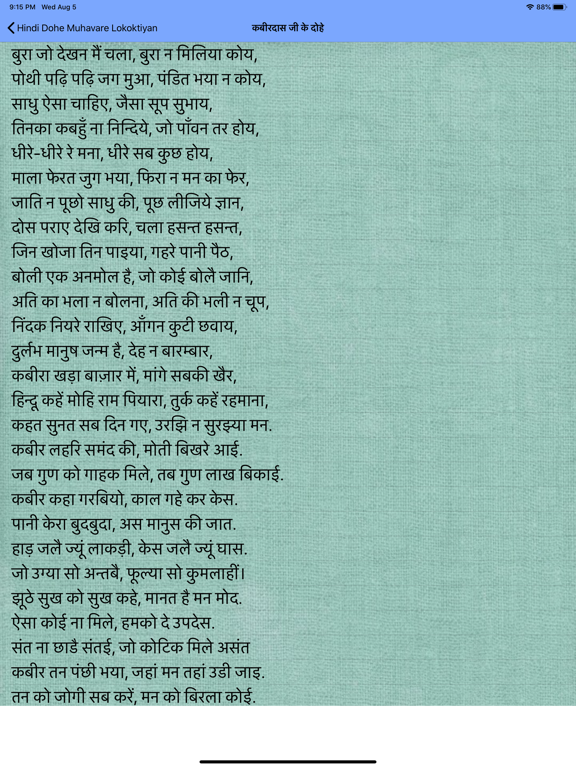 9:15 PM Wed Aug 5 88%
Hindi Dohe Muhavare Lokoktiyan कबीरदास जी के दोहे
बुरा जो देखन मैं चला, बुरा न मिलिया कोय,
पोथी पढ़ि पढ़ि जग मुआ, पंडित भया न कोय,
साधु ऐसा चाहिए, जैसा सूप सुभाय,
तिनका कबहुँ ना निन्दिये, जो पाँवन तर होय,
धीरे-धीरे रे मना, धीरे सब कुछ होय,
माला फेरत जुग भया, फिरा न मन का फेर,
जाति न पूछो साधु की, पूछ लीजिये ज्ञान,
दोस पराए देखि करि, चला हसन्त हसन्त,
जिन खोजा तिन पाइया, गहरे पानी पैठ,
बोली एक अनमोल है, जो कोई बोलै जानि,
अति का भला न बोलना, अति की भली न चूप,
निंदक नियरे राखिए, आँगन कुटी छवाय,
दुर्लभ मानुष जन्म है, देह न बारम्बार,
कबीरा खड़ा बाज़ार में, मांगे सबकी खैर,
हिन्दू कहें मोहि राम पियारा, तुर्क कहें रहमाना,
कहत सुनत सब दिन गए, उरझि न सुरझ्या मन.
कबीर लहरि समंद की, मोती बिखरे आई.
जब गुण को गाहक मिले, तब गुण लाख बिकाई.
कबीर कहा गरबियो, काल गहे कर केस.
पानी केरा बुदबुदा, अस मानुस की जात.
हाड़ जलै ज्यूं लाकड़ी, केस जलै ज्यूं घास.
जो उग्या सो अन्तबै, फूल्या सो कुमलाहीं।
झूठे सुख को सुख कहे, मानत है मन मोद.
ऐसा कोई ना मिले, हमको दे उपदेस.
संत ना छाडै संतई, जो कोटिक मिले असंत
कबीर तन पंछी भया, जहां मन तहां उडी जाइ.
तन को जोगी सब करें, मन को बिरला कोई.